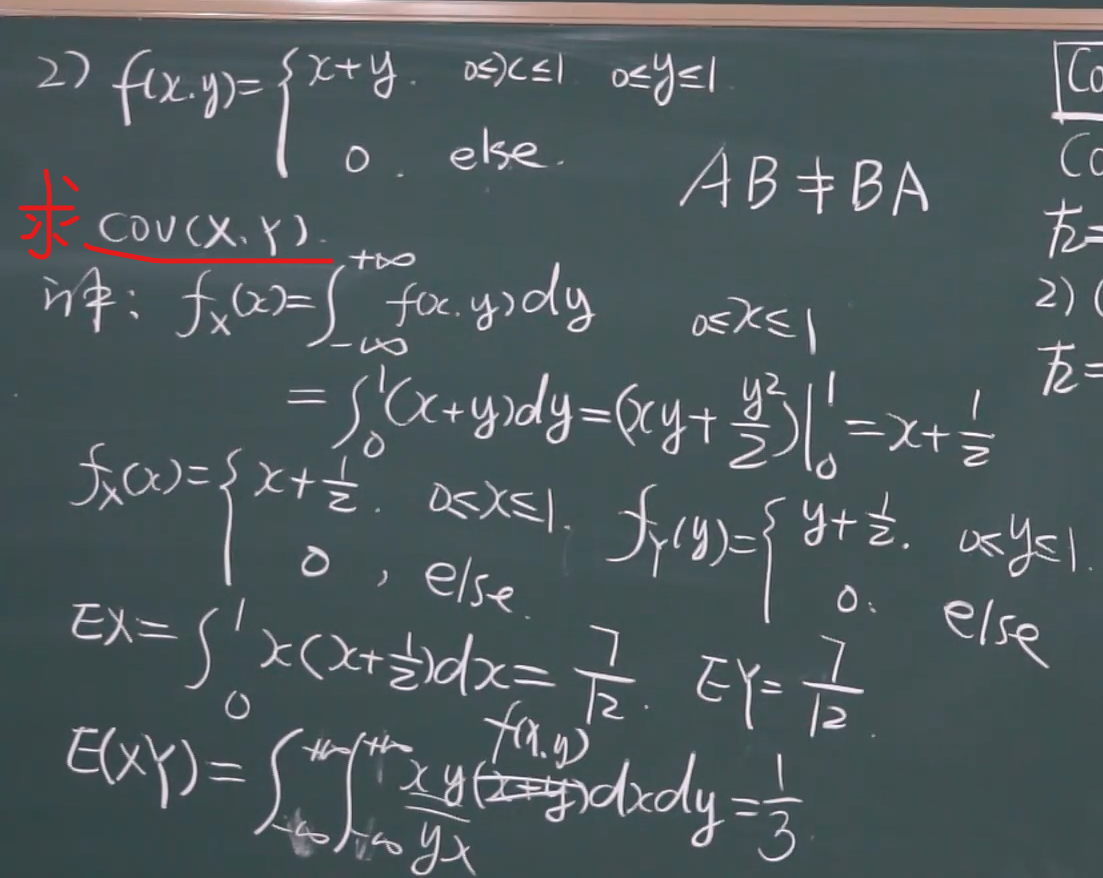 2) f(x,y)={x+y. 0≤x≤1 0≤y≤1.
0. else.
AB≠BA
求 COV(X,Y).
解: f_X(x)=∫_{-∞}^{+∞} f(x,y)dy 0≤x≤1
=∫_0^1(x+y)dy=(xy+y²/2)|_0^1=x+1/2
f_X(x)={x+1/2. 0≤x≤1. f_Y(y)={y+1/2. 0≤y≤1.
0, else. 0. else
EX=∫_0^1 x(x+1/2)dx=7/12. EY=7/12.
f(x,y)
E(XY)=∫_{-∞}^{+∞}∫_{-∞}^{+∞} xy(x+y)dxdy=1/3
yx
Co
Co
2) (